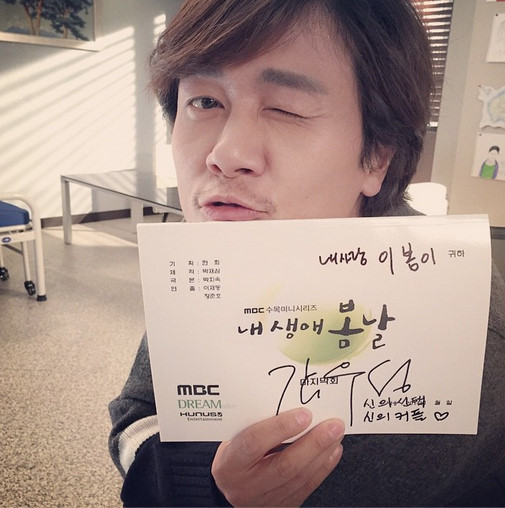 내사랑 이봄이 귀하
기 획 : 한 희
제 작 : 박재삼
극 본 : 박지숙
연 출 : 이재동
정준호
MBC 수목미니시리즈
내 생애 봄날
마지막회
감우성
신의 선택 월 일
신의 커플 ♡
MBC
DREAM
HUNUS
Entertainment